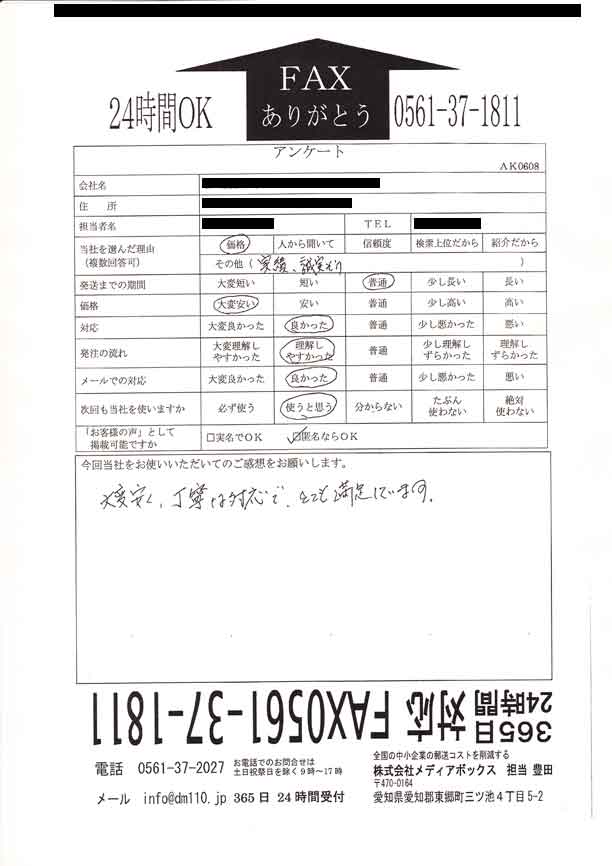 FAX
ありがとう
24時間OK
0561-37-1811
アンケート
AK0608
会社名
住 所
担当者名 TEL
当社を選んだ理由 (複数回答可) 価格 人から聞いて 信頼度 検索上位だから 紹介だから
その他 ( 実績、誠実さ )
発送までの期間 大変短い 短い 普通 少し長い 長い
価格 大変安い 安い 普通 少し高い 高い
対応 大変良かった 良かった 普通 少し悪かった 悪い
発注の流れ 大変理解しやすかった 理解しやすかった 普通 少し理解しずらかった 理解しずらかった
メールでの対応 大変良かった 良かった 普通 少し悪かった 悪い
次回も当社を使いますか 必ず使う 使うと思う 分からない たぶん使わない 絶対使わない
「お客様の声」として掲載可能ですか □実名でOK □匿名ならOK
今回当社をお使いいただいてのご感想をお願いします。
大変安く、丁寧な対応で、とても満足しています。
365日 24時間 対応 FAX0561-37-1811
電話 0561-37-2027 お電話でのお問合せは 土日祝祭日を除く9時~17時
メール info@dm110.jp 365日 24時間受付
全国の中小企業の郵送コストを削減する
株式会社メディアボックス 担当 豊田
〒470-0164
愛知県愛知郡東郷町三ツ池4丁目5-2